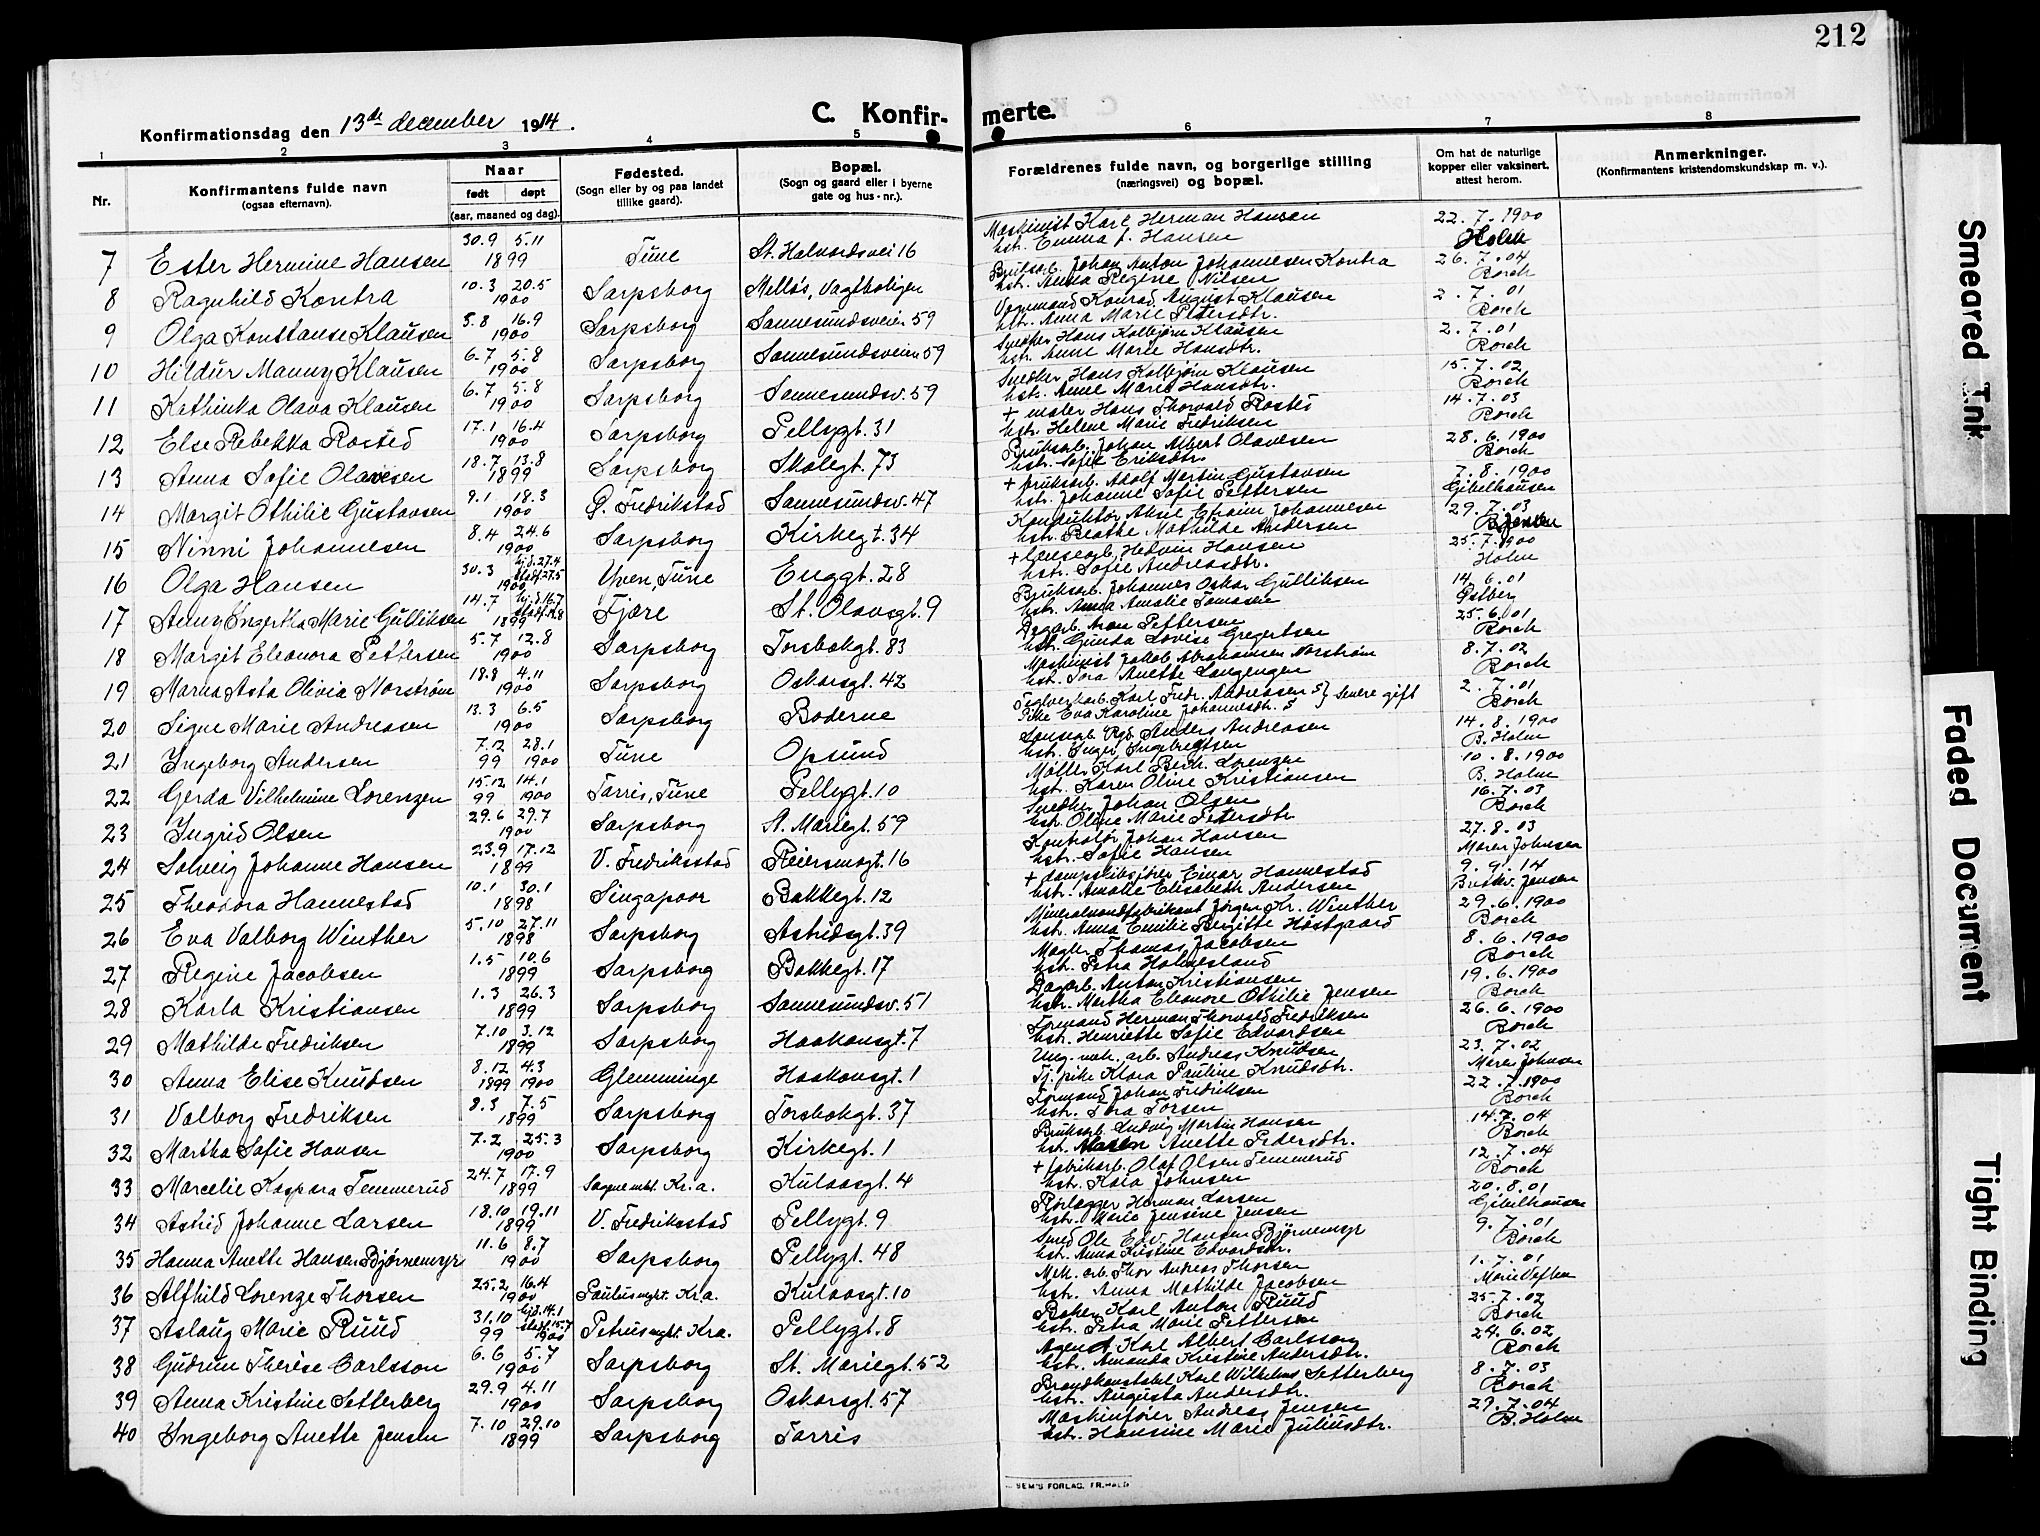 212
Konfirmationsdag den 13de december 1914.
C. Konfirmerte.
1 2 3 4 5 6 7 8
Nr.
Konfirmantens fulde navn
(ogsaa efternavn).
Naar
født døpt
(aar, maaned og dag).
Fødested.
(Sogn eller by og paa landet
tillike gaard).
Bopæl.
(Sogn og gaard eller i byerne
gate og hus-nr.).
Forældrenes fulde navn, og borgerlige stilling
(næringsvei) og bopæl.
Om hat de naturlige
kopper eller vaksinert,
attest herom.
Anmerkninger.
(Konfirmantens kristendomskundskap m. v.).
7 Ester Hermine Hansen 30.9 5.11 1899 Tune St. Halvardsvei 16 Maskinist Karl Herman Hansen hstr. Emma f. Hansen 22.7.1900 Holm
8 Ragnhild Kontra 10.3 20.5 1900 Sarpsborg Melløs, Vagtboligen Bruksarb. Johan Anton Johannesen Kontra hstr. Anna Regine Nilsen 26.7.04 Borch
9 Olga Konstanse Klausen 5.8 16.9 1900 Sarpsborg Sannesundsveien 59 Vognmand Konrad August Klausen hstr. Anna Marie Petersdtr. 2.7.01 Borch
10 Hildur Manny Klausen 6.7 5.8 1900 Sarpsborg Sannesundsveien 59 Snedker Hans Kolbjørn Klausen hstr. Anne Marie Hansdtr. 2.7.01 Borch
11 Kathinka Olava Klausen 6.7 5.8 1900 Sarpsborg Sannesundsv. 59 Snedker Hans Kolbjørn Klausen hstr. Anne Marie Hansdtr. 15.7.02 Borch
12 Else Rebekka Rosted 17.1 16.4 1900 Sarpsborg Pellygt. 31 + maler Hans Thorvald Rosted hstr. Helene Marie Fredriksen 14.7.03 Borch
13 Anna Sofie Olavesen 18.7 13.8 1899 Sarpsborg Skolegt. 73 Bruksarb. Johan Albert Olavesen hstr. Sofie Eriksdtr. 28.6.1900 Borch
14 Margit Othilie Gustavsen 9.1 18.3 1900 G. Fredrikstad Sannesundsv. 47 + bruksarb. Adolf Martin Gustavsen hstr. Johanne Sofie Pettersen 7.8.1900 Gibelhausen
15 Ninni Johannesen 8.4 24.6 1900 Sarpsborg Kirkegt. 34 Konduktør Aksel Efraim Johannesen hstr. Beathe Mathilde Andersen 29.7.03
16 Olga Hansen 30.3 hjd. 27.4 stadf. 27.5 1900 Yven, Tune Enggt. 28 + Hedvin Hansen hstr. Sofie Andreasdtr. 25.7.1900 Holm
17 Anny Ingerkla Marie Gulliksen 14.7 hj.d. 16.7 1899 Fjære St. Olavsgt. 9 Bruksarb. Johannes Oskar Gulliksen hstr. Anna Amalie Tomasen 14.6.01 Østberg
18 Margit Eleonora Pettersen 5.7 12.8 1900 Sarpsborg Torsbekgt. 83 Dagarb. Aron Pettersen hstr. Gunda Lovise Gregertsen 25.6.01 Borch
19 Marna Asta Olivia Norstrøm 18.8 4.11 1900 Sarpsborg Oskarsgt. 42 Maskinist Jakob Abrahamsen Norstrøm hstr. Tora Anette Langengen 8.7.02 Borch
20 Signe Marie Andreasen 13.3 6.5 1900 Sarpsborg Boderne Teglverkarb. Karl Fredr. Andreasen Pike Eva Karoline Johannesdtr. } senere gift 2.7.01 Borch
21 Ingeborg Andersen 7.12 99 28.1 1900 Tune Opsund Anders Andreasen hstr. Inger Ingebretsen 14.8.1900 B. Holm
22 Gerda Vilhelmine Lorenzen 15.12 99 14.1 1900 Tarris, Tune Pellygt. 10 Møller Karl Bech. Lorenzen hstr. Karen Oline Kristiansen 10.8.1900 B. Holm
23 Ingrid Olsen 29.6 29.7 1900 Sarpsborg St. Mariegt. 59 Snedker Johan Olsen hstr. Oline Marie Petersdtr. 16.7.03 Borch
24 Solveig Johanne Hansen 23.9 17.12 1899 V. Fredriksstad Reiersensgt. 16 Kontrolør Johan Hansen hstr. Sofie Hansen 27.8.03 Maren Johnsen
25 Theodora Hannestad 10.1 30.1 1898 Singapoor Bakkegt. 12 + dampskibsfører Einar Hannestad hstr. Amalie Elisabeth Andersen 9.9.14 Jensen
26 Eva Valborg Winther 5.10 27.11 1898 Sarpsborg Astridsgt. 39 Mineralvandfabrikant Jørgen Kr. Winther hstr. Anna Emilie Birgitte Høstgaard 29.6.1900 Borch
27 Regine Jacobsen 1.5 10.6 1899 Sarpsborg Bakkegt. 17 Mægler Thomas Jacobsen hstr. Petra Holmesland 8.6.1900 Borch
28 Karla Kristiansen 1.3 26.3 1899 Sarpsborg Sannesundsv. 51 Dagarb. Anton Kristiansen hstr. Martha Eleonore Othilie Jensen 19.6.1900 Borch
29 Mathilde Fredriksen 7.10 3.12 1899 Sarpsborg Haakonsgt. 7 Formand Herman Thorvald Fredriksen hstr. Henriette Sofie Edvardsen 26.6.1900 Borch
30 Anna Elise Knudsen 8.12 1899 4.3 1900 Glemminge Haakonsgt. 1 Ung. mek. arb. Andreas Knudsen Tj. pike Klara Pauline Knudsdtr. 23.7.02 Maren Johnsen
31 Valborg Fredriksen 8.3 7.5 1899 Sarpsborg Torsbekgt. 37 Formand Johan Fredriksen hstr. Tora Torsen 22.7.1900 Borch
32 Martha Sofie Hansen 7.2 25.3 1900 Sarpsborg Kirkegt. 1 Bruksarb. Ludvig Martin Hansen hstr. Maren Anette Pedersdtr. 14.7.04 Borch
33 Marcelie Kaspara Temmerud 24.7 17.9 1899 Sagene mht. Kr.a. Kulaasgt. 4 + fabrikarb. Olaf Olsen Temmerud hstr. Kaia Johnsen 12.7.04 Borch
34 Astrid Johanne Larsen 18.10 19.11 1899 V. Fredriksstad Pellygt. 9 Rørlægger Herman Larsen hstr. Marie Jensine Jensen 20.8.01 Gibelhausen
35 Hanna Anette Hansen Bjørnemyr 11.6 8.7 1900 Sarpsborg Pellygt. 48 Smed Ole Edv. Hansen Bjørnemyr hstr. Anna Kristine Edvardsdtr. 9.7.01 Borch
36 Alfhild Lorenze Thorsen 25.2 16.4 1900 Paulus mght. Kr.a. Kulaasgt. 10 Mek. arb. Thor Andreas Thorsen hstr. Anna Mathilde Jacobsen 1.7.01
37 Aslaug Marie Ruud 31.10 99 hjd. 14.1 stadf. 15.7 1900 Petrus mght. Kra. Pellygt. 8 Baker Karl Anton Ruud hstr. Petra Marie Pettersen 25.7.02 Borch
38 Gudrun Therese Carlsson 6.6 5.7 1900 Sarpsborg St. Mariegt. 52 Agent Karl Albert Carlsson hstr. Amanda Kristine Andersdtr. 24.6.02 Borch
39 Anna Kristine Setterberg 29.9 4.11 1900 Sarpsborg Oskarsgt. 57 Brandkonstabel Karl Wilhelms Setterberg hstr. Augusta Andersdtr. 8.7.03 Borch
40 Ingeborg Anette Jensen 7.10 29.10 1899 Sarpsborg Tarris Maskinfører Andreas Jensen hstr. Hansine Marie Juliusdtr. 29.7.04 B. Holm
SEM'S FORLAG, FR.HALD
Smeared Ink
Faded Document
Tight Binding